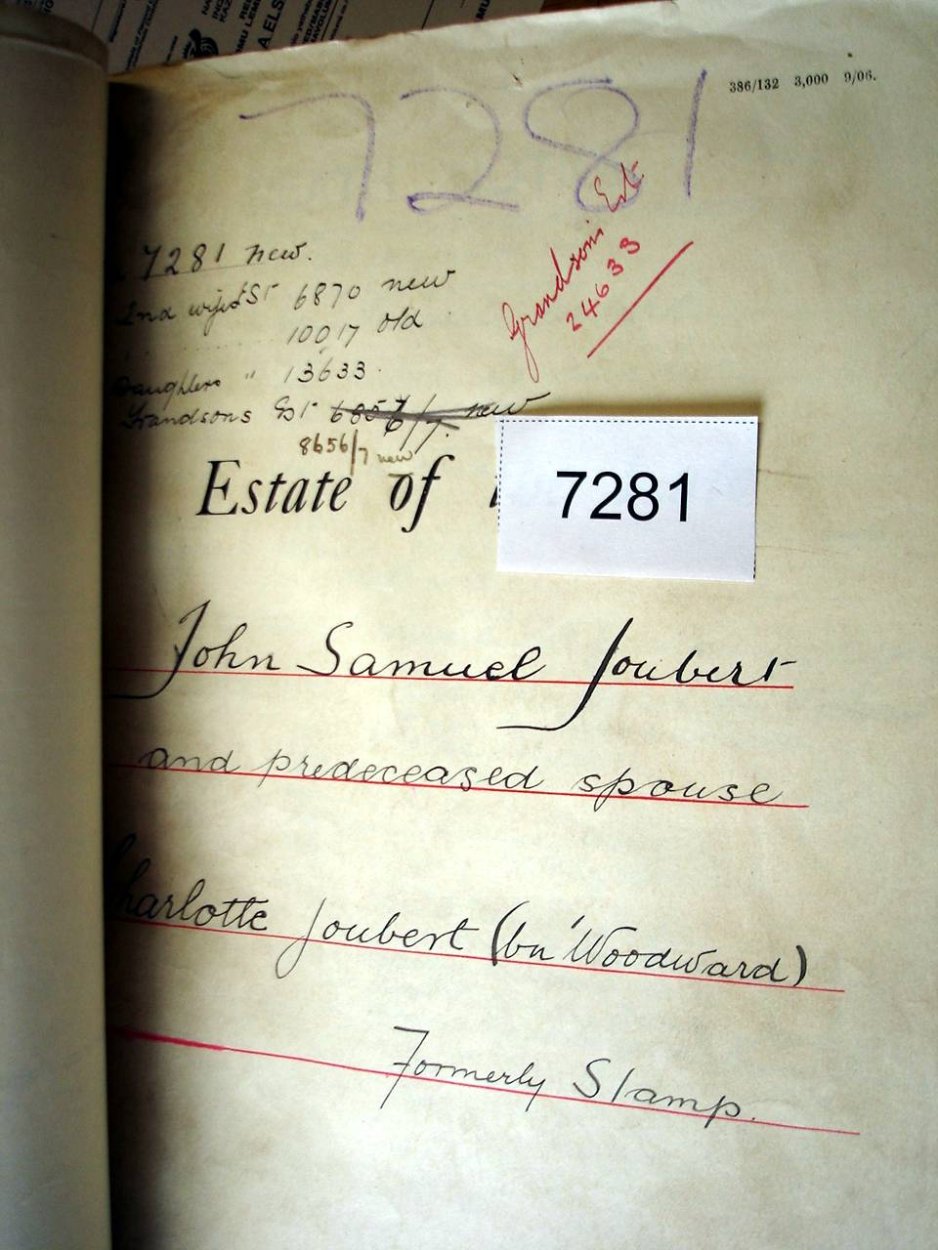 386/132 3,000 9/06.
7281
7281 new.
2nd wife's Est 6870 new
10017 old
Daughters " 13633.
Grandsons Est 6856/7. new
8656/7 new
Grandsons Est
24633
Estate of
7281
John Samuel Joubert
and predeceased spouse
Charlotte Joubert (bn Woodward)
Formerly Stamp.